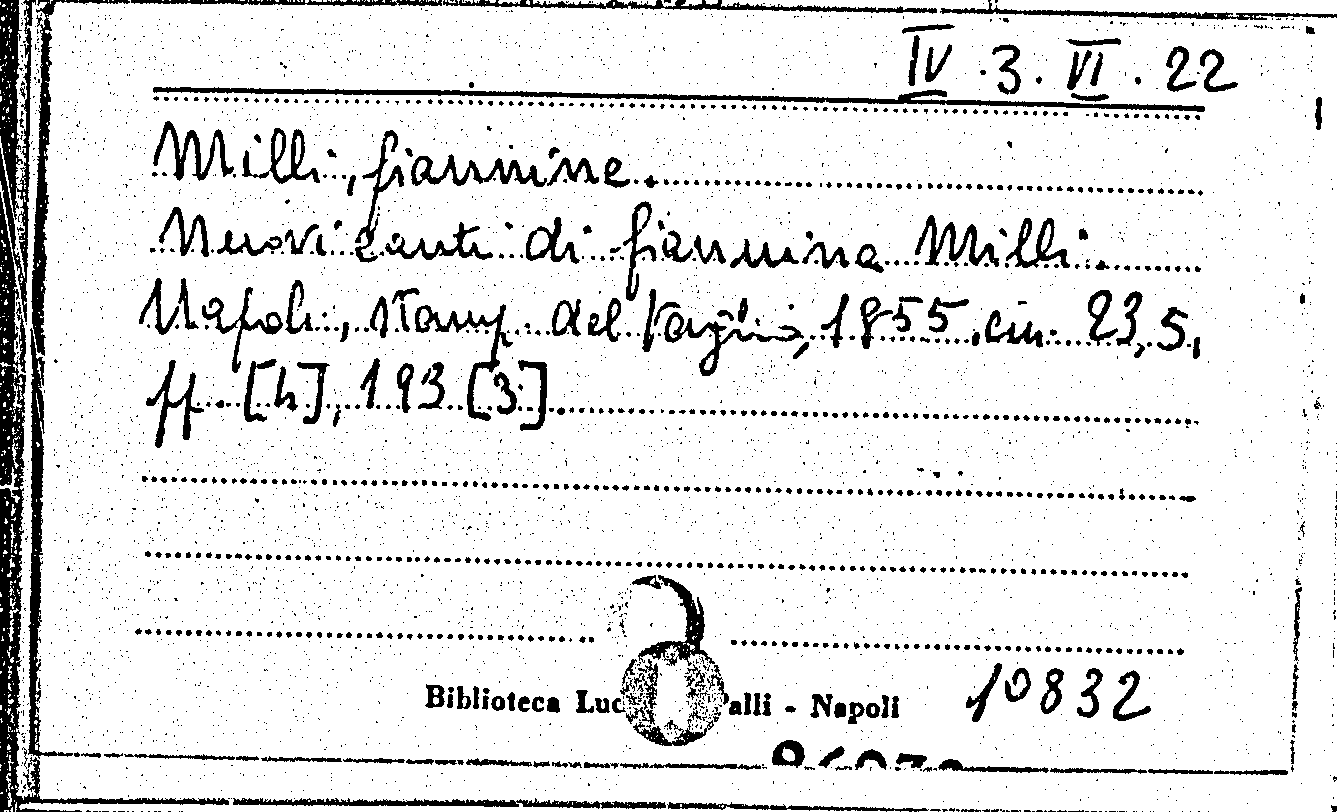 IV . 3 . VI . 22
Milli, Giannina.
Nuovi canti di Giannina Milli.
Napoli, stamp. del Vaglio, 1855, cm. 23,5,
pp. [4], 193 [3].
Biblioteca Luc alli - Napoli
10832